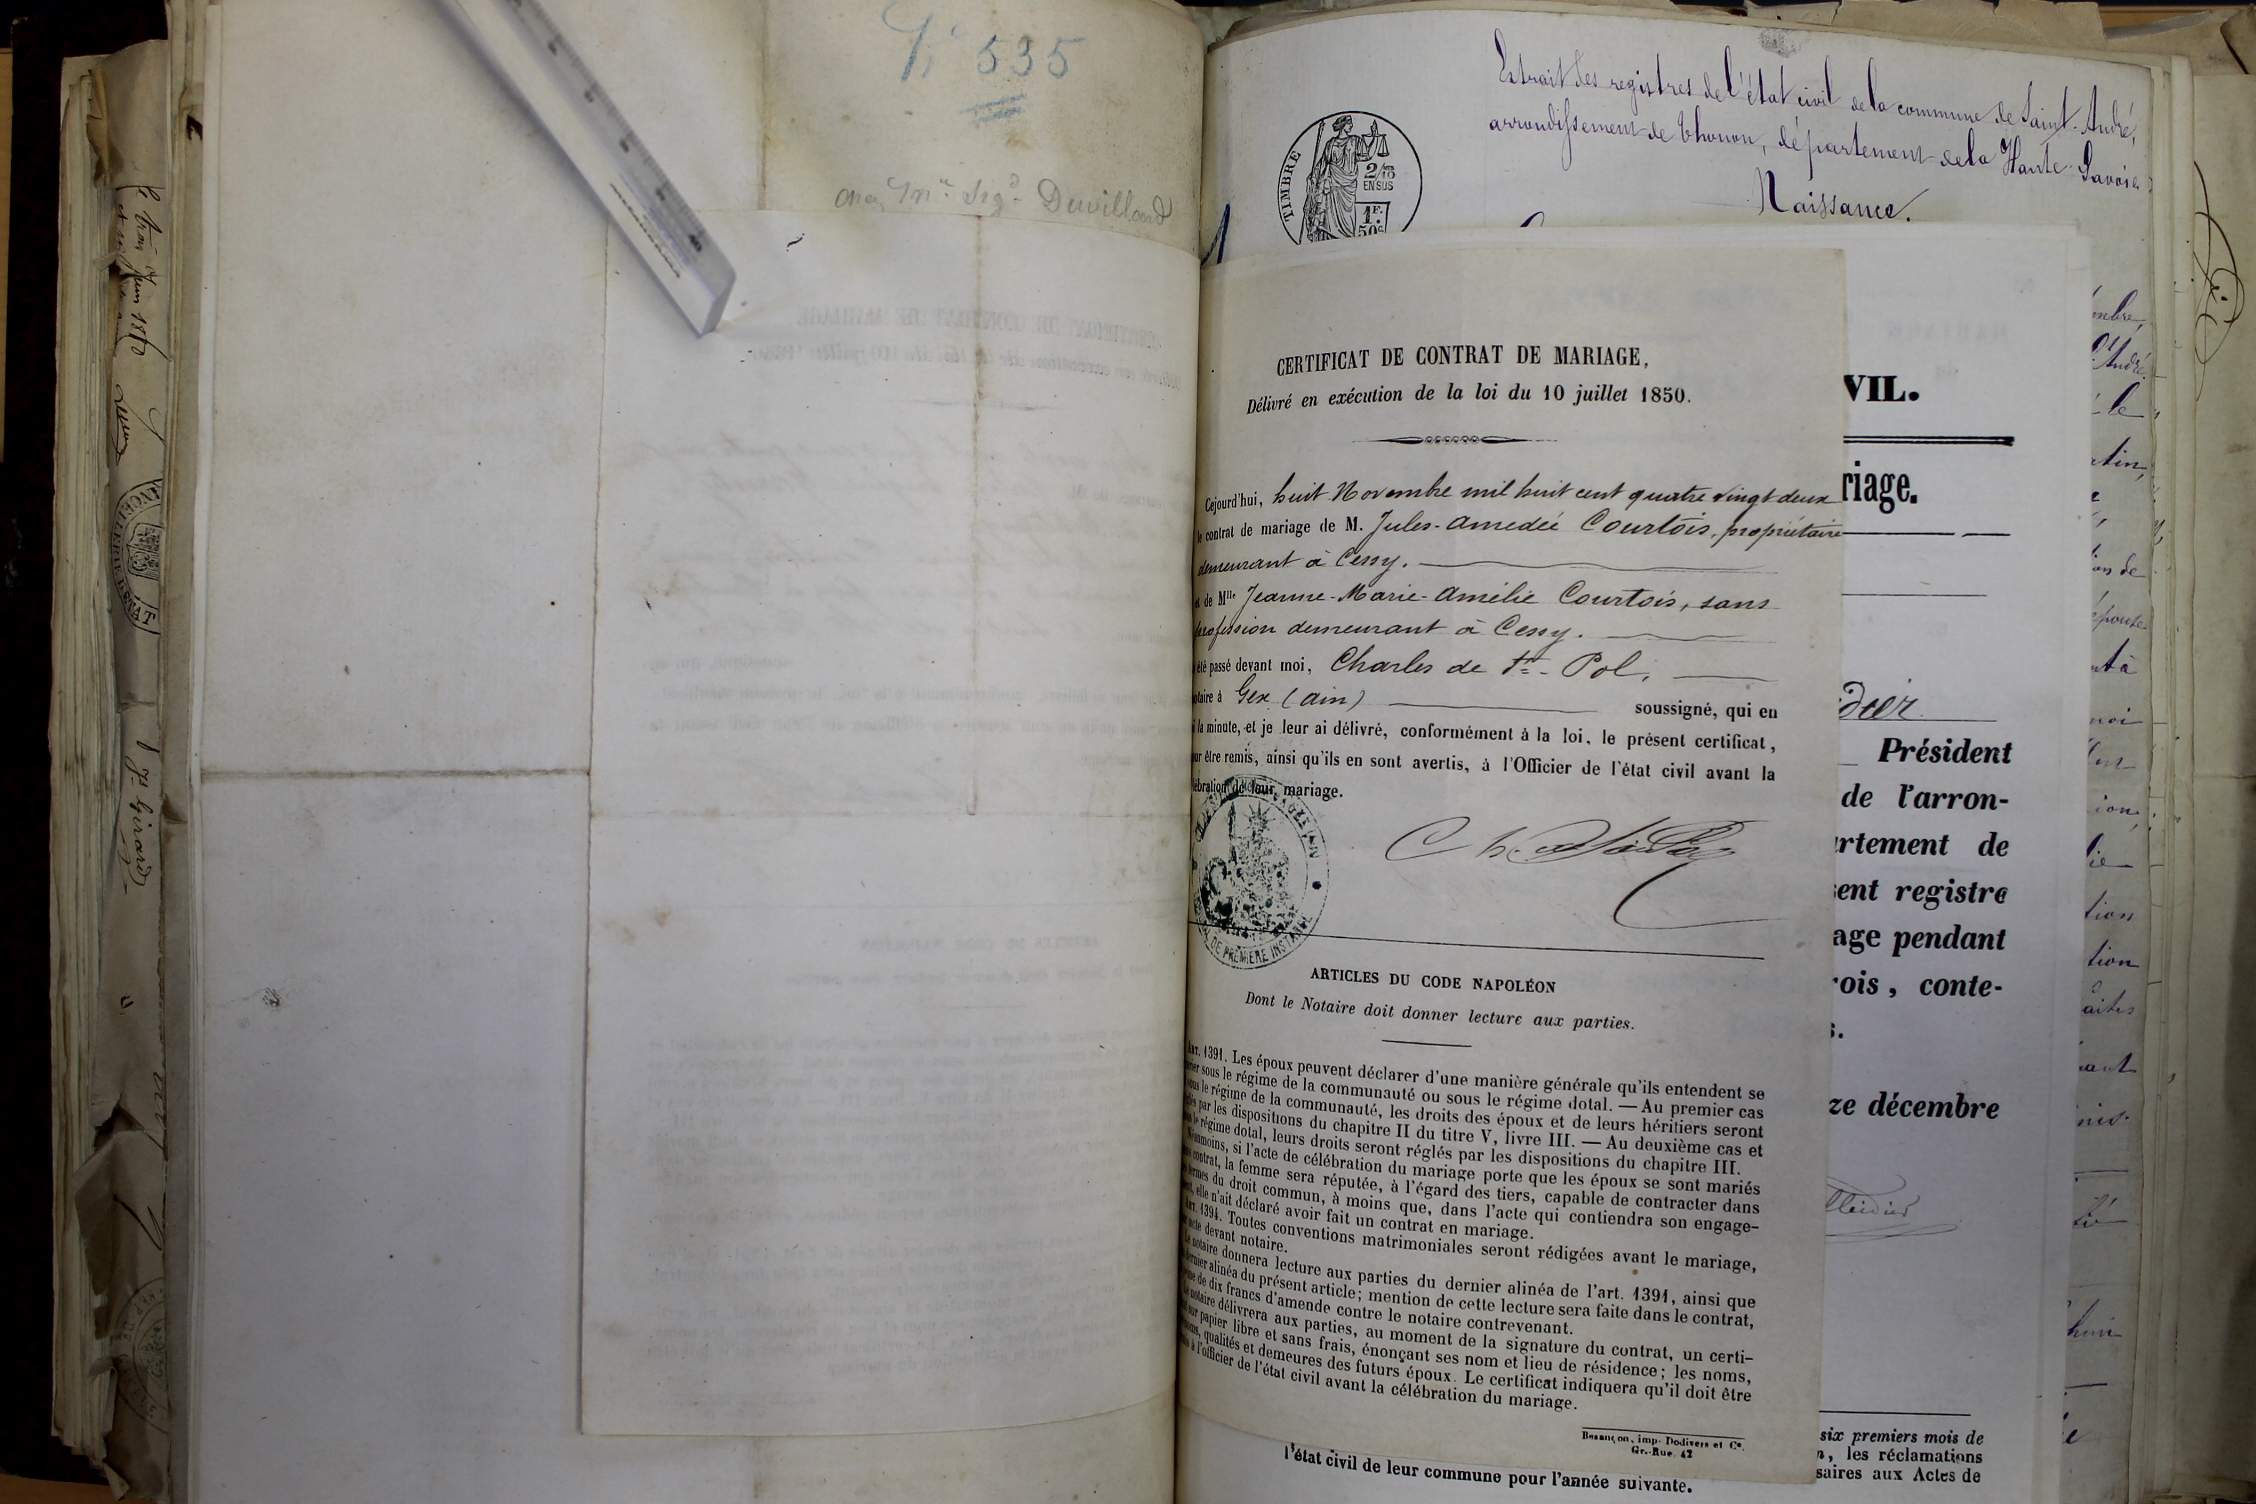 535
Duvilland
Extrait des registres de l'état civil de la commune de Saint-André,
arrondissement de Thonon, département de la Haute-Savoie
Naissance.
TIMBRE
2/10
EN SUS
1F.
50c
CERTIFICAT DE CONTRAT DE MARIAGE,
Délivré en exécution de la loi du 10 juillet 1850.
Cejourd'hui, huit Novembre mil huit cent quatre vingt deux
le contrat de mariage de M. Jules-Amedée Courtois, propriétaire
demeurant à Cessy.
et de Mlle Jeanne-Marie-Amélie Courtois, sans
profession demeurant à Cessy.
été passé devant moi, Charles de St- Pol,
notaire à Gex (ain) soussigné, qui en
la minute, et je leur ai délivré, conformément à la loi, le présent certificat,
pour être remis, ainsi qu'ils en sont avertis, à l'Officier de l'état civil avant la
célébration de leur mariage.
DE PREMIÈRE INSTANCE
ARTICLES DU CODE NAPOLÉON
Dont le Notaire doit donner lecture aux parties.
ART. 1391. Les époux peuvent déclarer d'une manière générale qu'ils entendent se
marier sous le régime de la communauté ou sous le régime dotal. — Au premier cas
sous le régime de la communauté, les droits des époux et de leurs héritiers seront
réglés par les dispositions du chapitre II du titre V, livre III. — Au deuxième cas et
sous le régime dotal, leurs droits seront réglés par les dispositions du chapitre III.
Néanmoins, si l'acte de célébration du mariage porte que les époux se sont mariés
sans contrat, la femme sera réputée, à l'égard des tiers, capable de contracter dans
les termes du droit commun, à moins que, dans l'acte qui contiendra son engage-
ment, elle n'ait déclaré avoir fait un contrat en mariage.
ART. 1394. Toutes conventions matrimoniales seront rédigées avant le mariage,
par acte devant notaire.
Le notaire donnera lecture aux parties du dernier alinéa de l'art. 1391, ainsi que
du dernier alinéa du présent article; mention de cette lecture sera faite dans le contrat,
à peine de dix francs d'amende contre le notaire contrevenant.
Le notaire délivrera aux parties, au moment de la signature du contrat, un certi-
ficat sur papier libre et sans frais, énonçant ses nom et lieu de résidence; les noms,
prénoms, qualités et demeures des futurs époux. Le certificat indiquera qu'il doit être
remis à l'officier de l'état civil avant la célébration du mariage.
Besançon, imp. Dodivers et Ce.
Gr.-Rue, 42
l'état civil de leur commune pour l'année suivante.
VIL.
riage.
Président
de l'arron-
rtement de
sent registre
age pendant
rois, conte-
s.
ze décembre
six premiers mois de
n, les réclamations
saires aux Actes de
mbre,
André
le
atin,
épouse
moi
tion
tion
aites